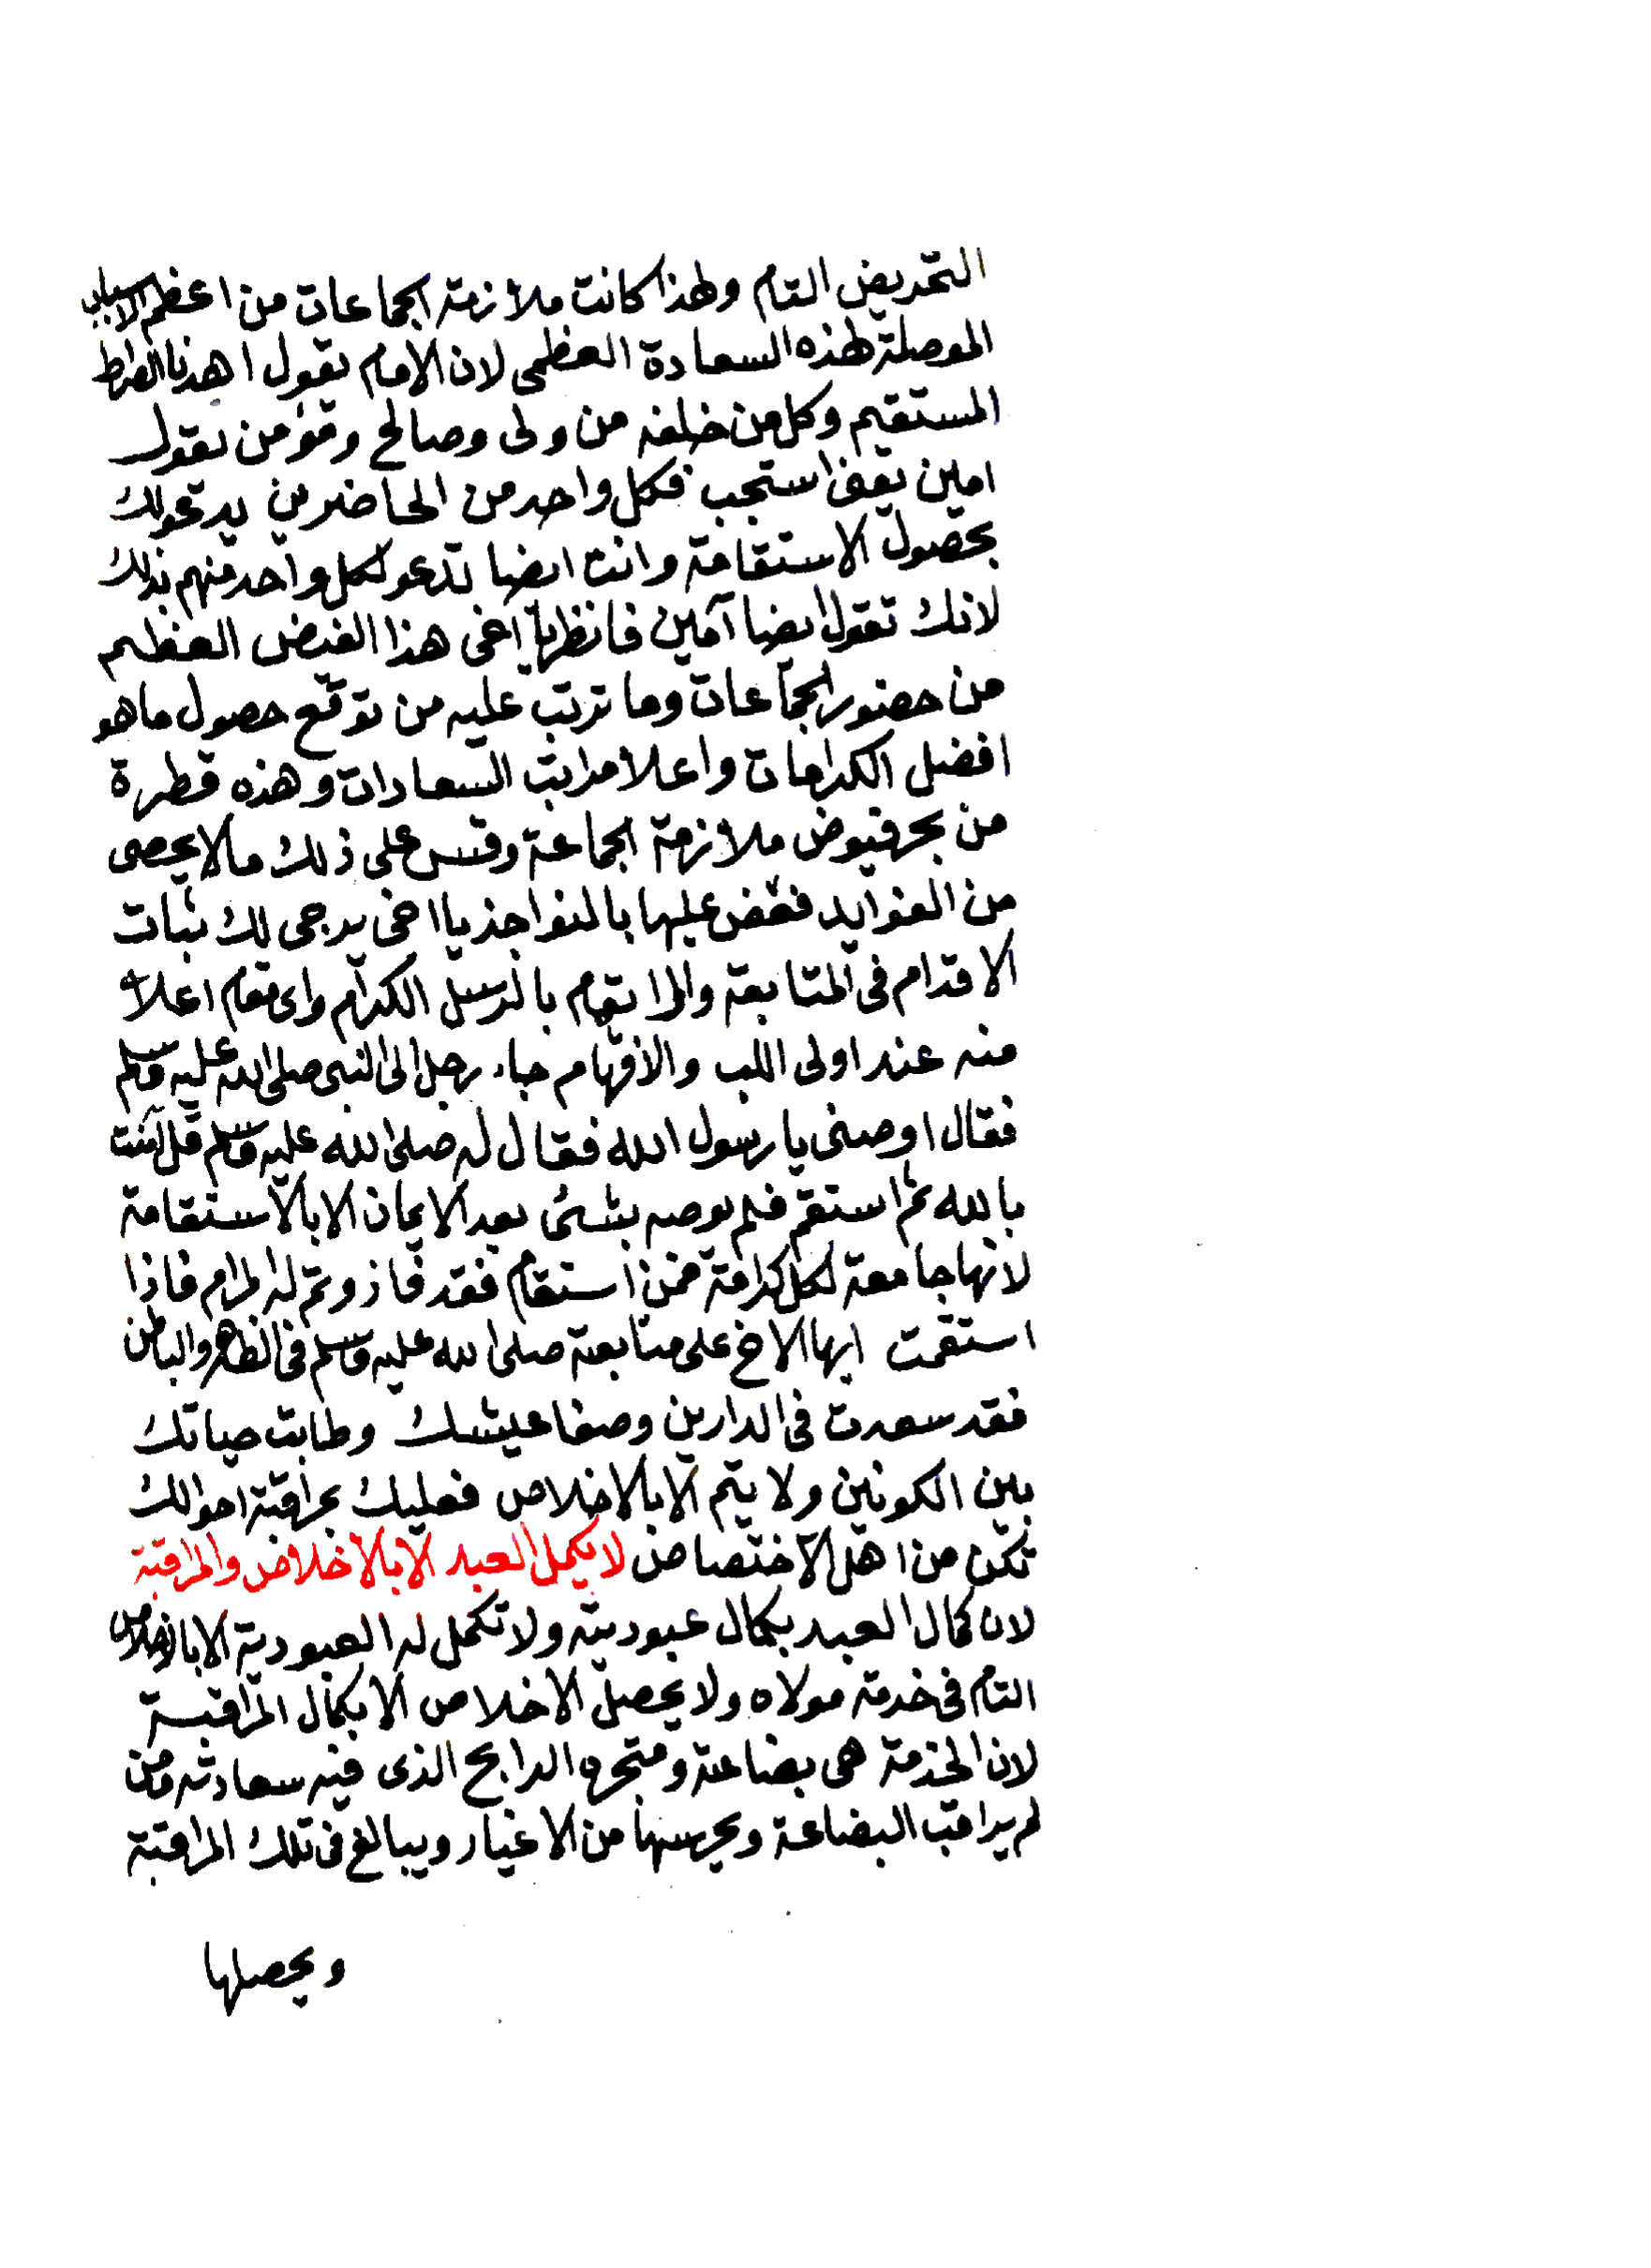 التحريض التام ولهذا كانت ملازمة الجماعات من اعظم الاسباب
الموصلة لهذه السعادة العظمى لان الامام يقول اهدنا الصراط
المستقيم وكل من خلفه من ولى وصالح ومؤمن يقول
امين يعنى استجب فكل واحد من الحاضرين يدعو لك
بحصول الاستقامة وانت ايضا تدعو لكل واحد منهم بذلك
لانك تقول ايضا آمين فانظر يا اخى هذا الفيض العظيم
من حضور الجماعات وما ترتب عليه من توقع حصول ما هو
افضل الكرامات واعلا مراتب السعادات وهذه قطرة
من بحر فيوض ملازمة الجماعة وقس على ذلك ما لا يحصى
من الفوايد فعض عليها بالنواجذ يا اخى يرجى لك ثبات
الاقدام فى المتابعة والايتمام بالرسل الكرام واى مقام اعلا
منه عند اولى اللب والافهام جاء رجل الى النبى صلى الله عليه وسلم
فقال اوصنى يا رسول الله فقال له صلى الله عليه وسلم قل آمنت
بالله ثم استقم فلم يوصه بشئ بعد الايمان الا بالاستقامة
لانها جامعة لكل كرامة فمن استقام فقد فاز وتم له المرام فاذا
استقمت ايها الاخ على متابعة صلى الله عليه وسلم فى الظاهر والباطن
فقد سعدت فى الدارين وصفا عيشك وطابت حياتك
بين الكونين ولا يتم الا بالاخلاص فعليك بمراقبة احوالك
تكن من اهل الاختصاص لا يكمل العبد الا بالاخلاص والمراقبة
لان كمال العبد بكمال عبوديته ولا تكمل له العبودية الا بالاخلاص
التام فى خدمة مولاه ولا يحصل الاخلاص الا بكمال المراقبة
لان الخدمة هى بضاعته ومتجره الرابح الذى فيه سعادته ومن
لم يراقب البضاعة ويحرسها من الاغيار ويبالغ فى تلك المراقبة
ويحصلها